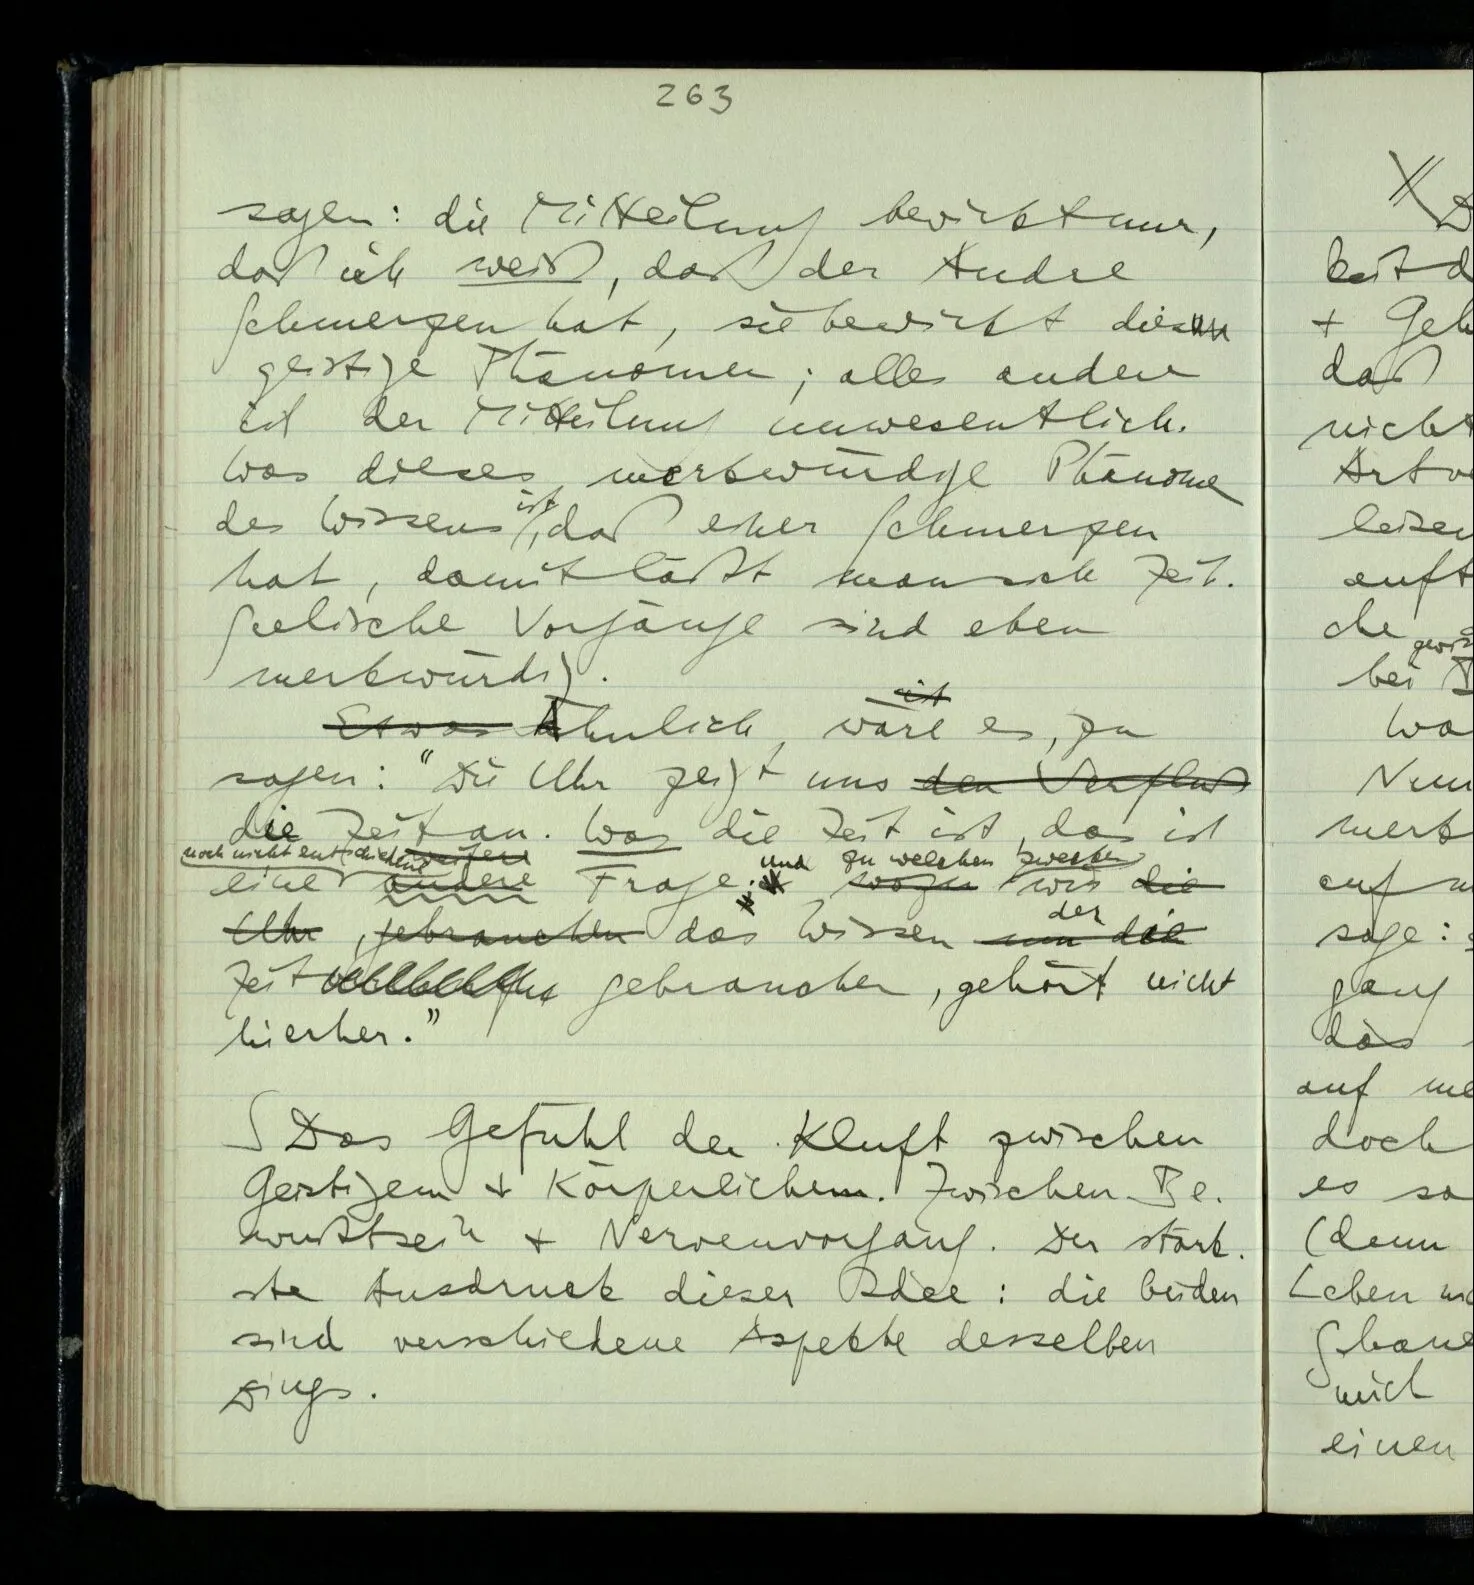 263
sagen: die Mitteilung bewirkt nur,
daß ich weiß, daß der Andre
Schmerzen hat, sie bewirkt dies
geistige Phänomen; alles andere
ist der Mitteilung unwesentlich.
Was dieses merkwürdige Phänomen
des Wissens ist, daß einer Schmerzen
hat, damit läßt man sich Zeit.
Seelische Vorgänge sind eben
merkwürdig.
ist
Etwas Ähnlich, wäre es, zu
sagen: "Die Uhr zeigt uns den Verfluß
die Zeit an. Was die Zeit ist, das ist
noch nicht entschiedene weitere
eine andere Frage. und zu welchen Zwecken
wozu wir die
Uhr, gebrauchen das Wissen um die der
Zeit gebrauchen, gehört nicht
hierher."
∫ Das Gefühl der Kluft zwischen
Geistigem + Körperlichem. Zwischen Be-
wußtsein + Nervenvorgang. Der stärk-
ste Ausdruck dieser Idee: die beiden
sind verschiedene Aspekte desselben
Dings.
+ Geh
daß
nicht
auf me
doch
es
(denn
Leben
mich
einen